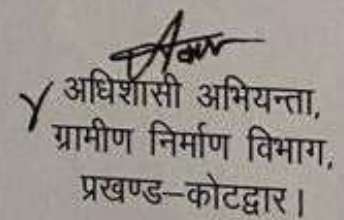 अधिशासी अभियन्ता,
ग्रामीण निर्माण विभाग,
प्रखण्ड–कोटद्वार।